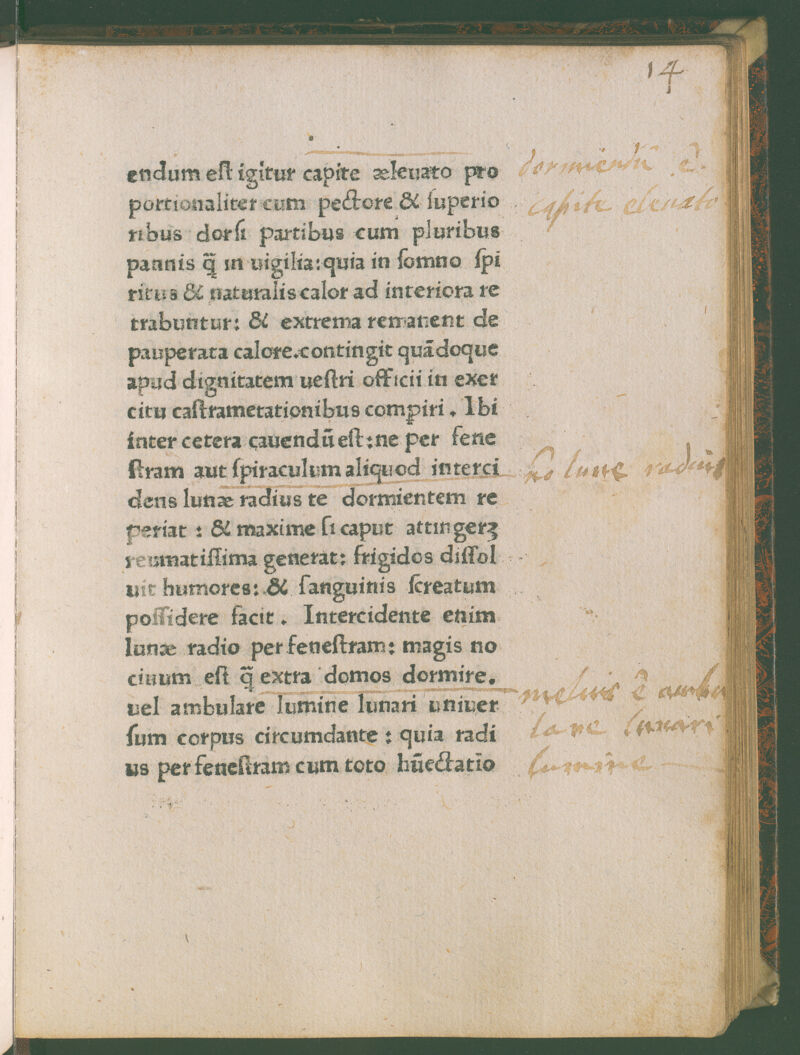 14
endum eſt igitur capite æleuato pro
portionaliter cum pectore & ſuperio
ribus dorſi partibus cum pluribus
pannis q̃ in uigilia: quia in ſomno ſpi
ritus & naturalis calor ad interiora re
trabuntur: & extrema remanent de
pauperata calore. contingit quãdoque
apud dignitatem ueſtri officii in exer
citu caſtrametationibus compiri. Ibi
inter cetera cauendũ eſt: ne per fene
ſtram aut ſpiraculum aliquod interci
dens lunæ radius te dormientem re
periat: & maxime ſi caput attingerꝫ
reumatiſſima generat: frigidos diſſol
uit humores: & ſanguinis ſcreatum
poſſidere facit. Intercidente enim
lunæ radio per feneſtram: magis no
ciuum eſt q̃ extra domos dormire,
uel ambulare lumine lunari uniuer
ſum corpus circumdante: quia radi
us per feneſtram cum toto hũectatio
dormiendũ ẽ.
capite eleuato
lune radius
melius ẽ ambu
lare lunari
lumine